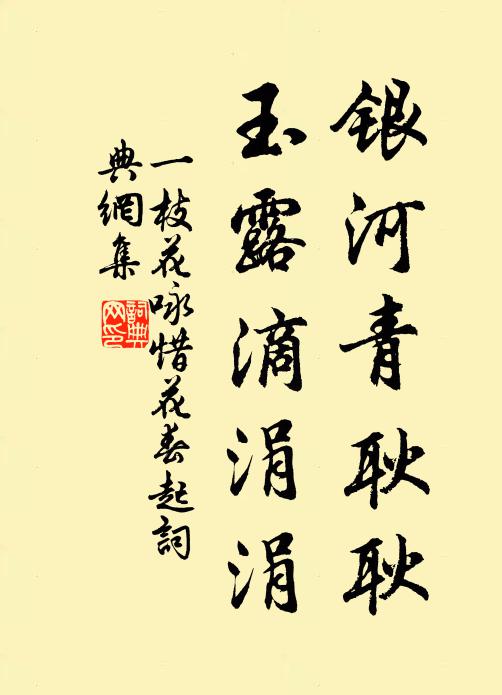 銀河青耿耿
玉露滴涓涓
一枝花咏惜花春起詞
典網集
詞典網印